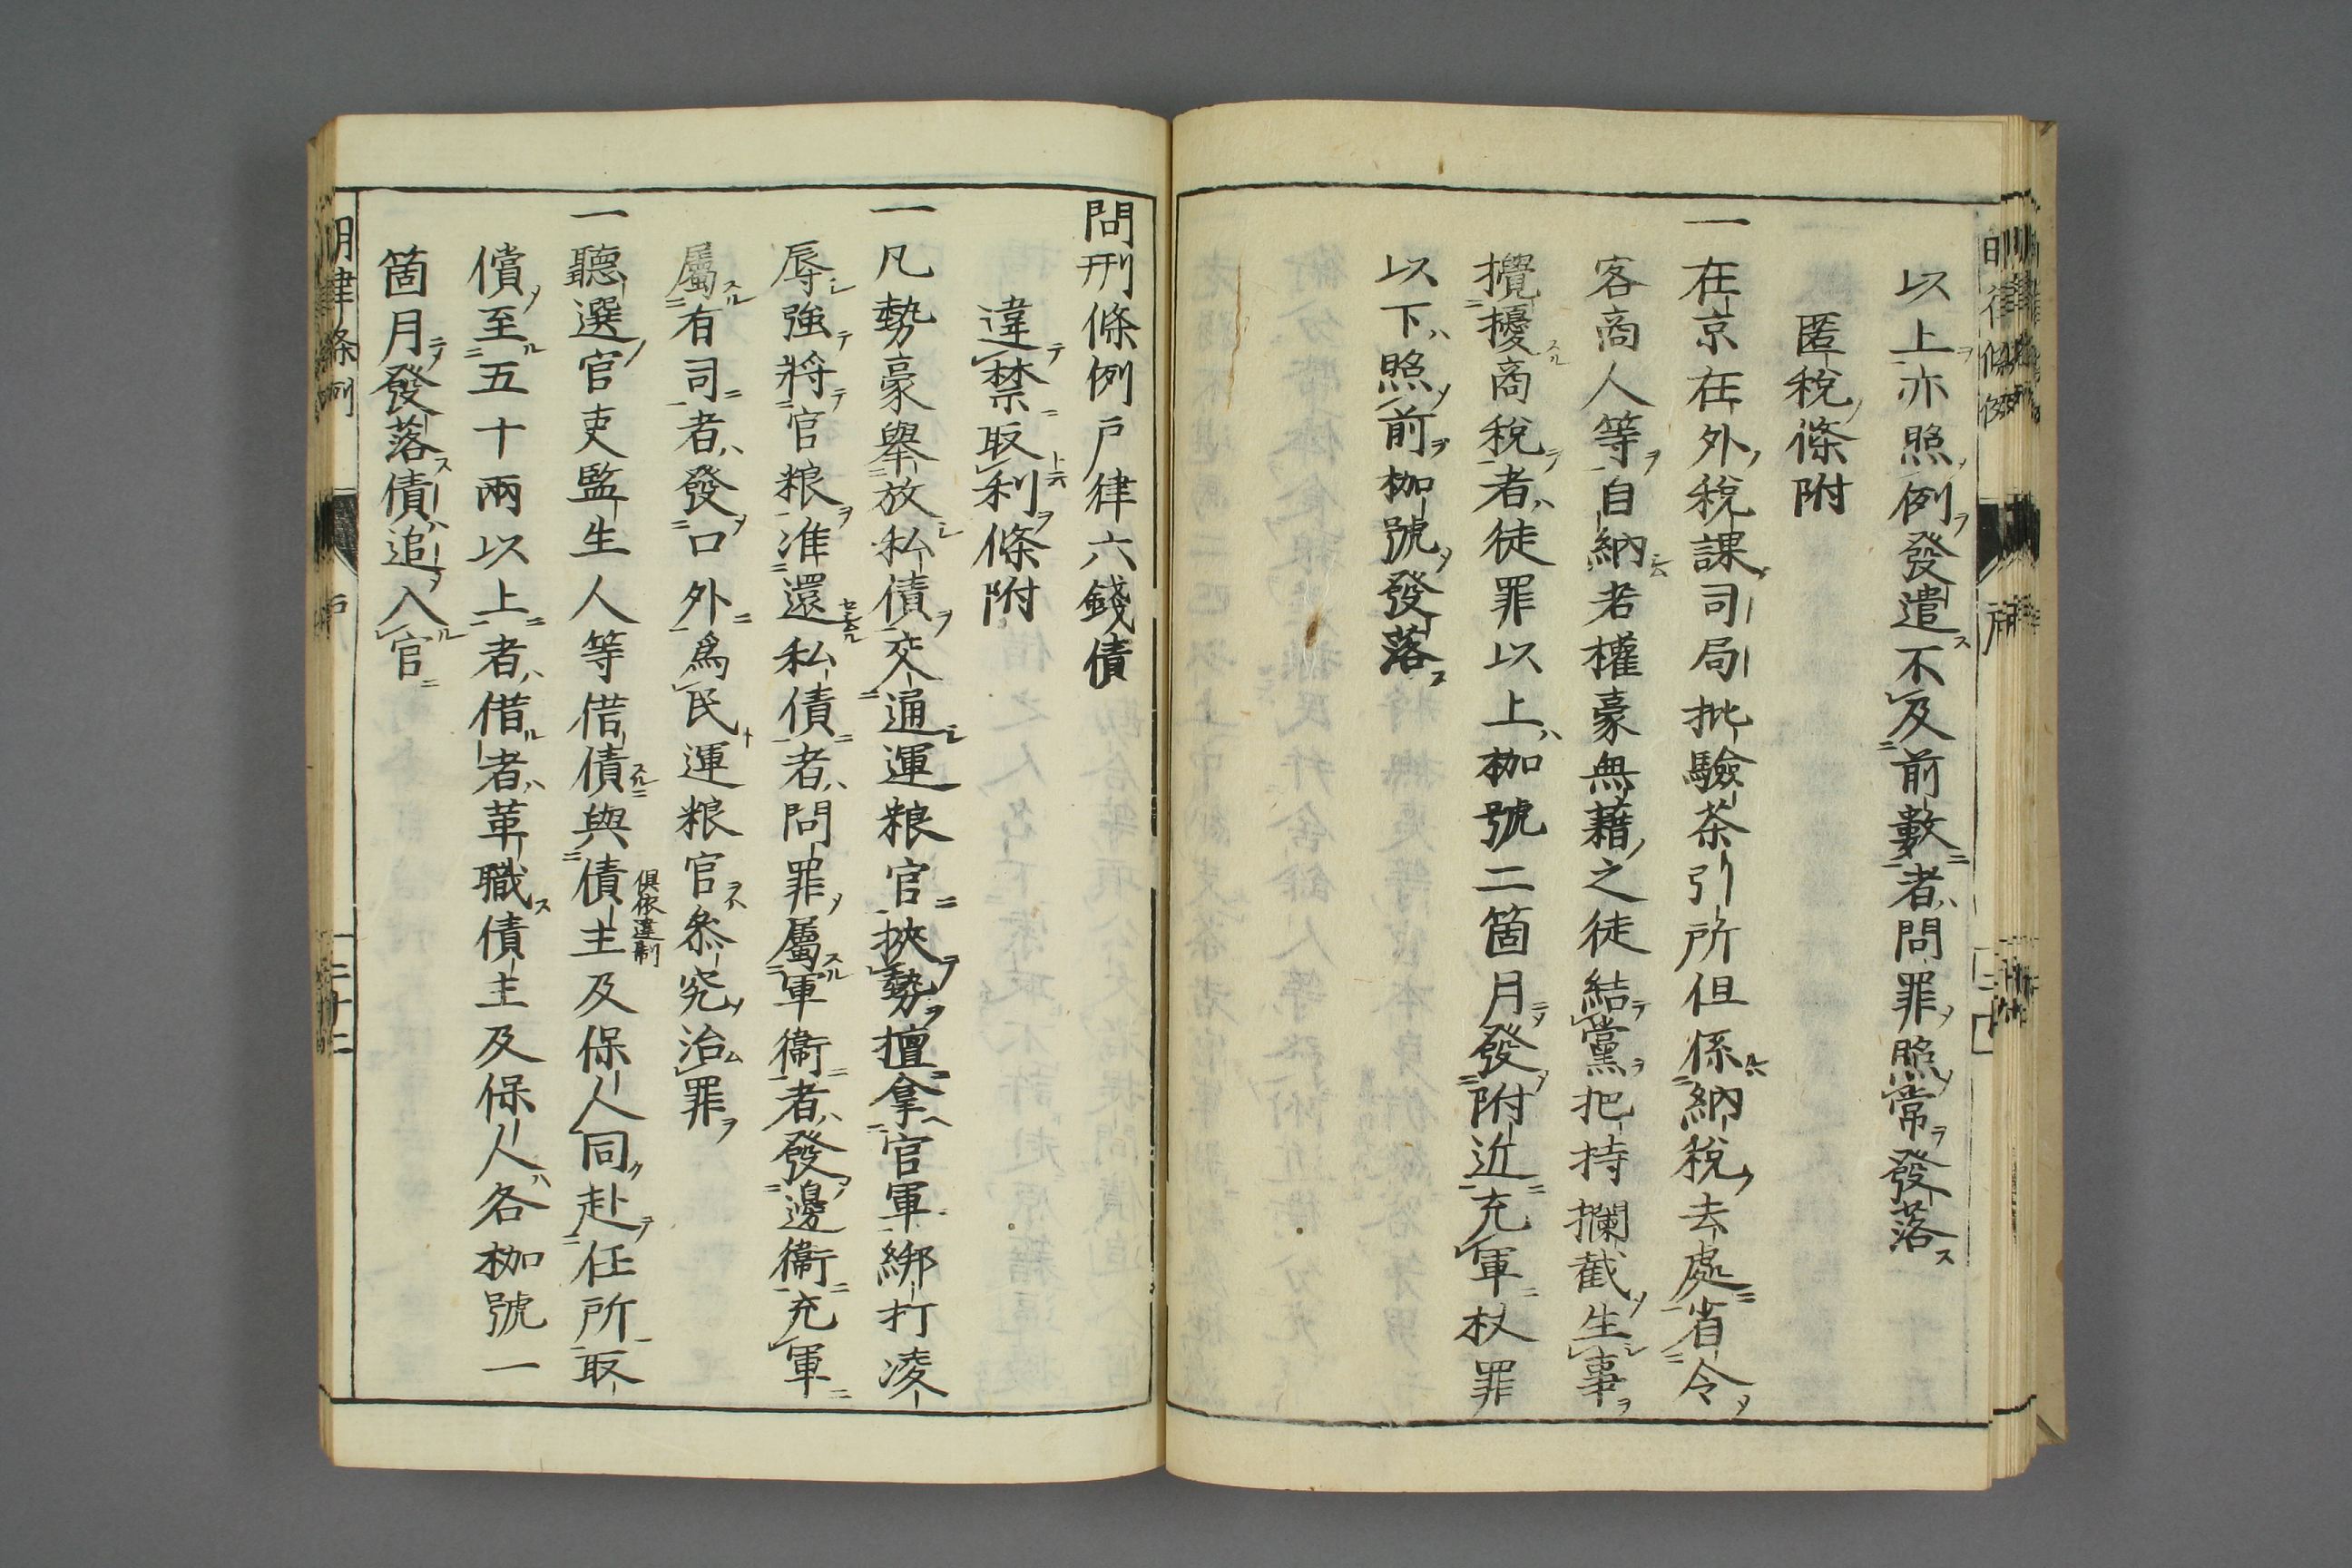 以上亦照例發遣不及前數者問罪照常發落
匿稅條附
一在京在外稅課司局批驗茶引所但係納稅去處省令
客商人等自納若權豪無藉之徒結黨把持攔截生事
攪擾商稅者徒罪以上枷號二箇月發附近充軍杖罪
以下照前枷號發落
問刑條例戶律六錢債
違禁取利條附
一凡勢豪舉放私債交通運粮官挾勢擅拿官軍綁打凌
辱強將官粮准還私債者問罪屬軍衞者發邊衞充軍
屬有司者發口外爲民運粮官叅究治罪
一聽選官吏監生人等借債與債主及保人同赴任所取
俱依違制
償至五十兩以上者借者革職債主及保人各枷號一
箇月發落債追入官
明律條例
戶
二十二